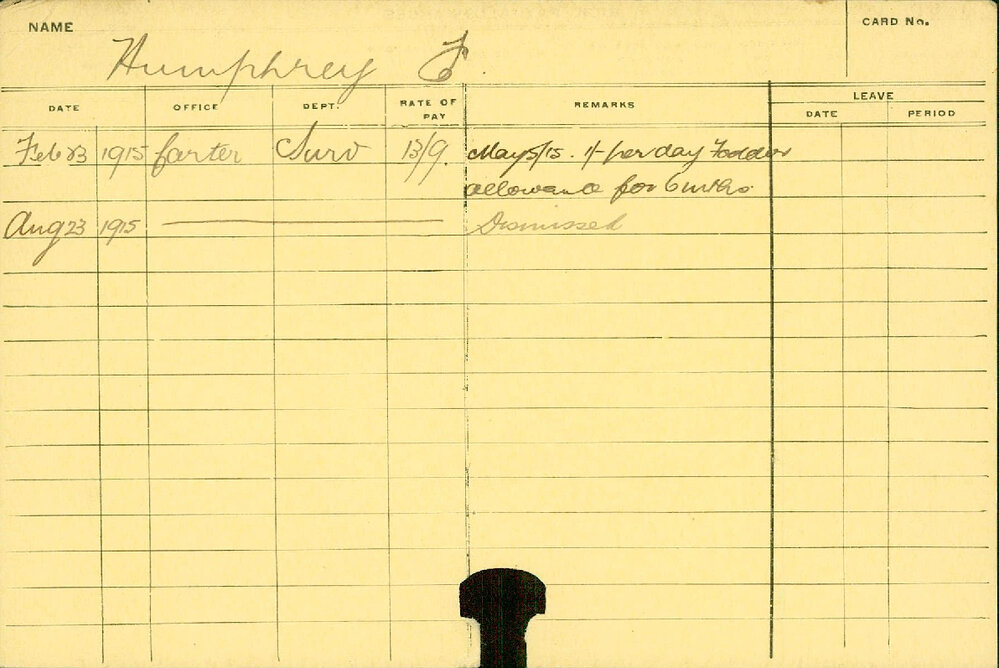 NAME
CARD No.
Humphrey F.
DATE OFFICE DEPT. RATE OF PAY REMARKS LEAVE
DATE PERIOD
Feb 23 1915 Carter Surv 13/9. May 5/15. 1/- per day Fodder
allowance for 6 mths.
Aug 23 1915 Dismissed